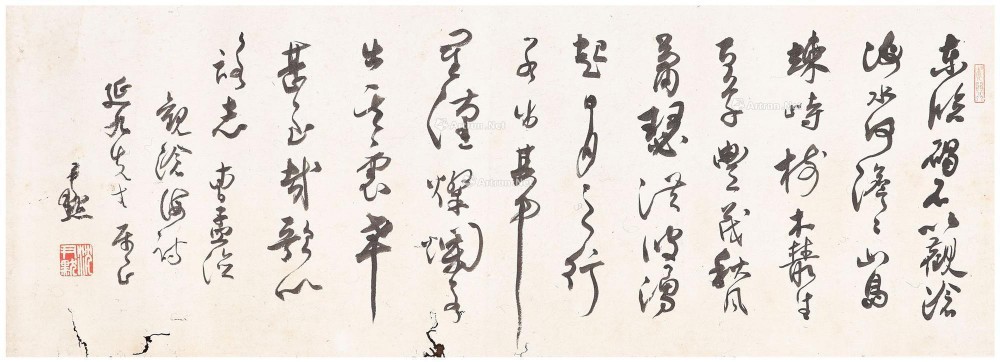 東臨碣石以觀滄
海水何澹々山島
竦峙樹木叢生
百草豐茂秋風
蕭瑟洪波湧
起日月之行
若出其中
星漢燦爛若
出其裏幸
甚至哉歌以
詠志 曹孟德
觀滄海詩
延九先生屬正
尹默
沈尹默
Artron.Net